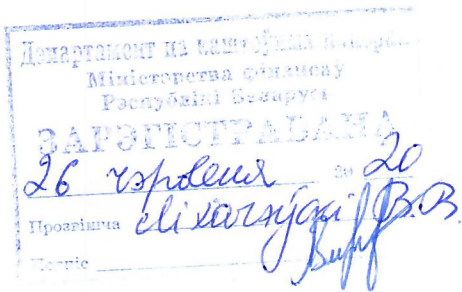 Дэпартамент па каштоўных паперах
Міністэрства фінансаў
Рэспублікі Беларусь
ЗАРЭГІСТРАВАНА
26 чэрвеня 20 20
Прозвішча В.В.
Подпіс